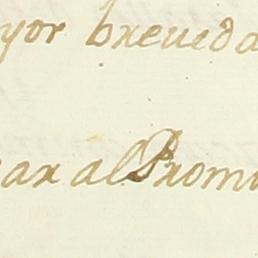 yor breveda
ar al Promo